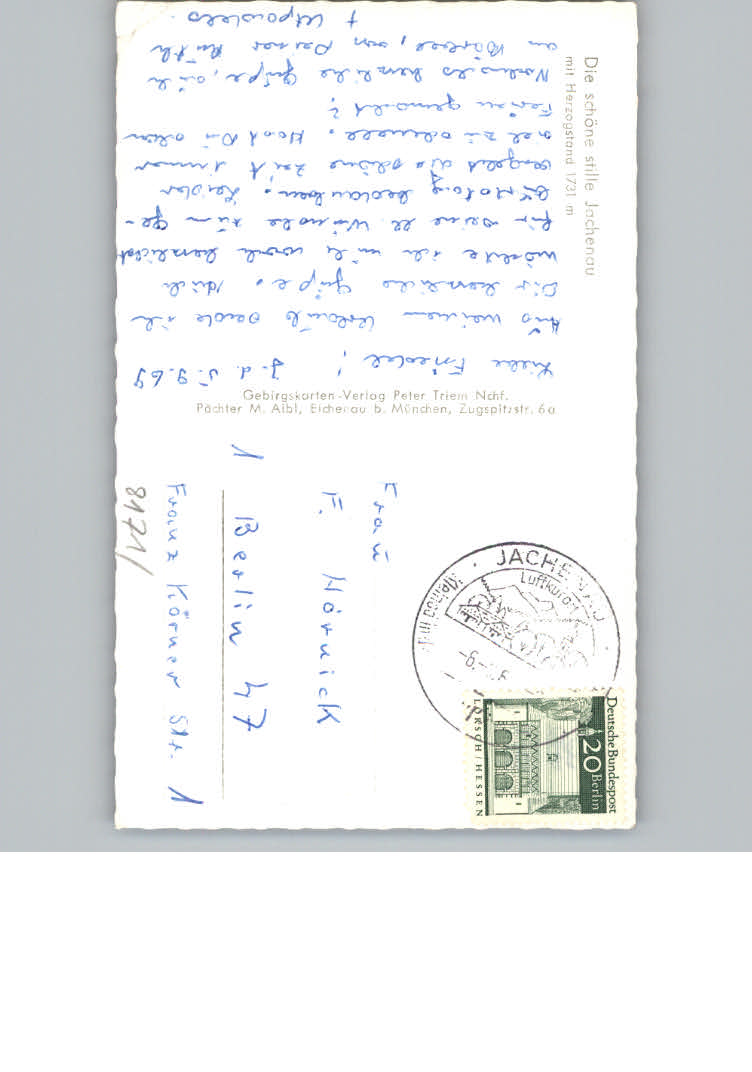 Die schöne stille Jachenau
mit Herzogstand 1731 m
J. d. 5.9.69
Liebe Friedel!
Aus meinem Urlaub sende ich
Dir herzliche Grüße. Auch
möchte ich mich noch herzlichst
für Deine lb. Wünsche zum Ge-
burtstag bedanken. Leider
vergeht die schöne Zeit immer
viel zu schnell. Hast Du schon
Ferien gemacht?
Nochmals herzliche Grüße, auch
an Bärbel, von Deiner Ruth
Gebirgskarten-Verlag Peter Triem Nchf.
Pächter M. Aibl, Eichenau b. München, Zugspitzstr. 6a
Frau
F. Hörnick
1 Berlin 47
Franz Körner Str. 1
8171/
JACHENAU
Luftkurort
Deutsche Bundespost
20 Berlin
LORSCH / HESSEN